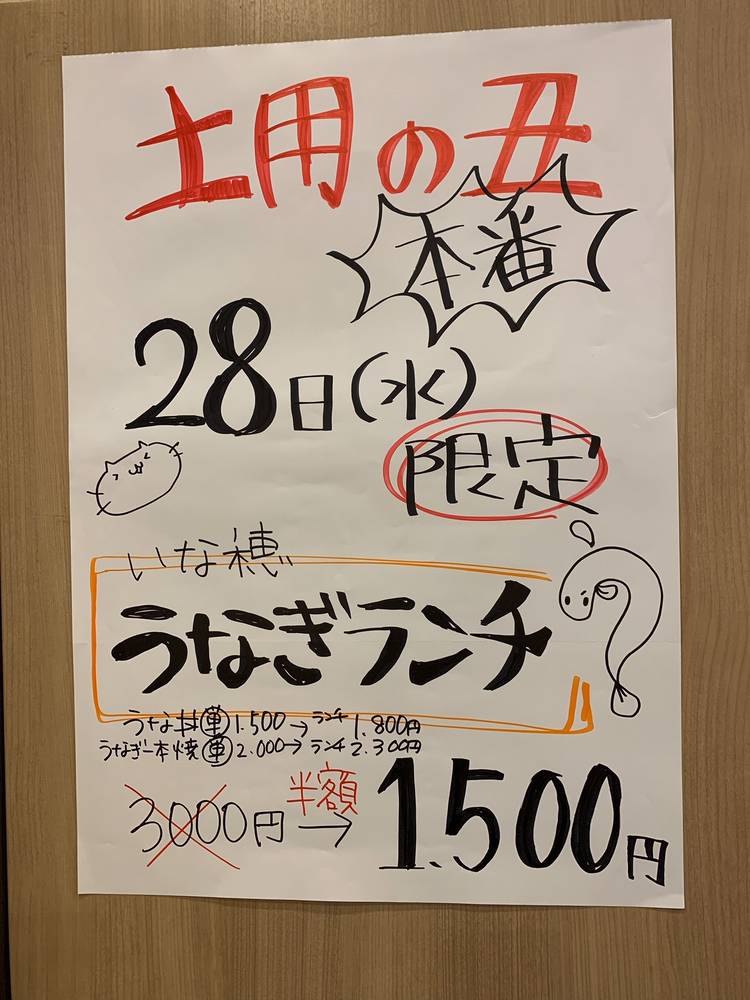 土用の丑
本番
28日(水)
限定
いな穂
うなぎランチ
うな丼単1.500→ランチ1.800円
うなぎ一本焼単2.000→ランチ2.300円
3000円→半額1.500円